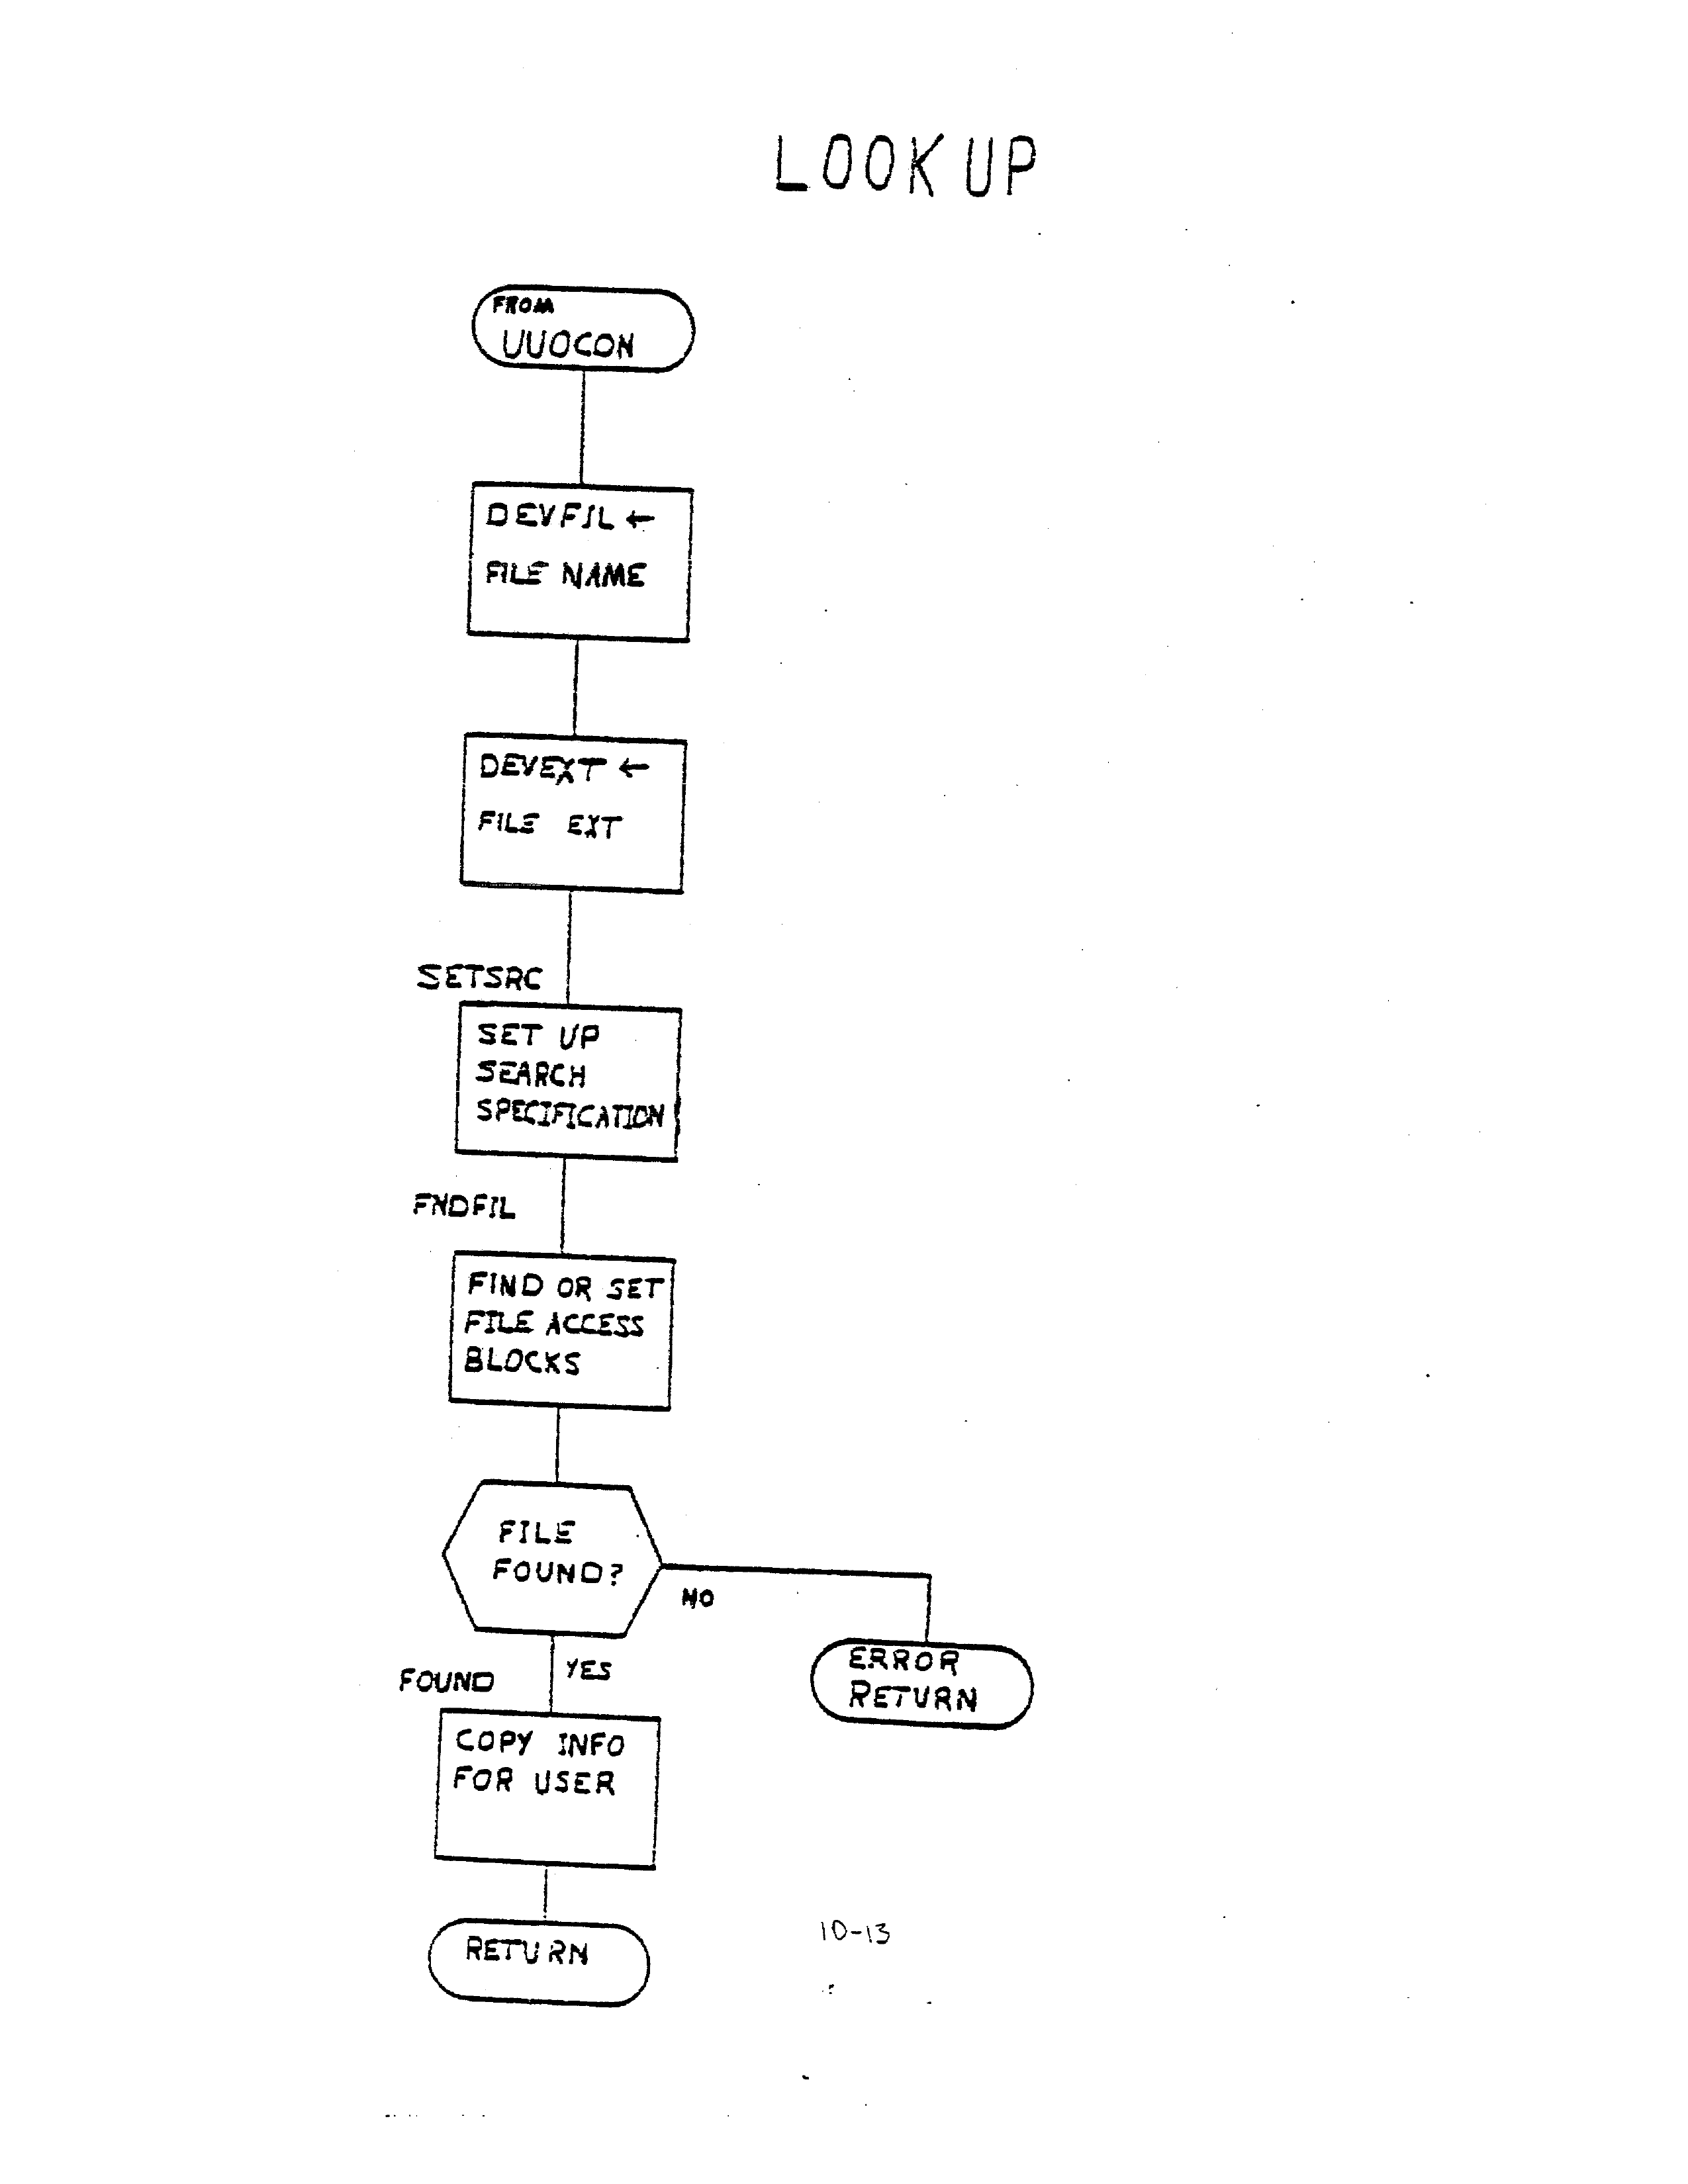 LOOKUP
FROM
UUOCON
DEVFIL ←
FILE NAME
DEVEXT ←
FILE EXT
SETSRC
SET UP
SEARCH
SPECIFICATION
FNDFIL
FIND OR SET
FILE ACCESS
BLOCKS
FILE
FOUND?
NO
YES
FOUND
ERROR
RETURN
COPY INFO
FOR USER
RETURN
10-13